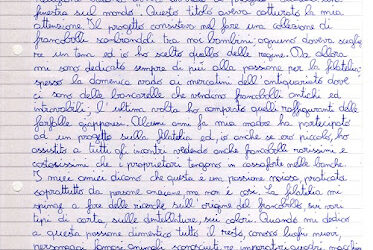 finestra sul mondo". Questo titolo aveva catturato la mia
attenzione. Il progetto consisteva nel fare una collezione di
francobolli scambiandoli tra noi bambini; ognuno doveva scegliere
un tema ed io ho scelto quello delle regine. Da allora
mi sono dedicato sempre di più alla passione per la filatelia;
spesso la domenica vado ai mercatini dell'antiquariato dove
ci sono delle bancarelle che vendono francobolli antichi ed
introvabili; l'ultima volta ho comprato quelli raffiguranti delle
farfalle giapponesi. Alcuni anni fa mia madre ha partecipato
ad un progetto sulla filatelia ed io anche se ero piccolo, ho
assistito a tutti gli incontri vedendo anche francobolli rarissimi e
costosissimi che i proprietari tengono in cassaforte nelle banche.
I miei amici dicono che questa è un passione noiosa, praticata
soprattutto da persone anziane, ma non è così. La filatelia mi
spinge a fare delle ricerche sull'origine del francobollo, sui vari
tipi di carta, sulle dentellature, sui colori. Quando mi dedico
a questa passione dimentico tutto il resto, conosco luoghi nuovi,
personaggi famosi, animali sconosciuti, re, imperatori,